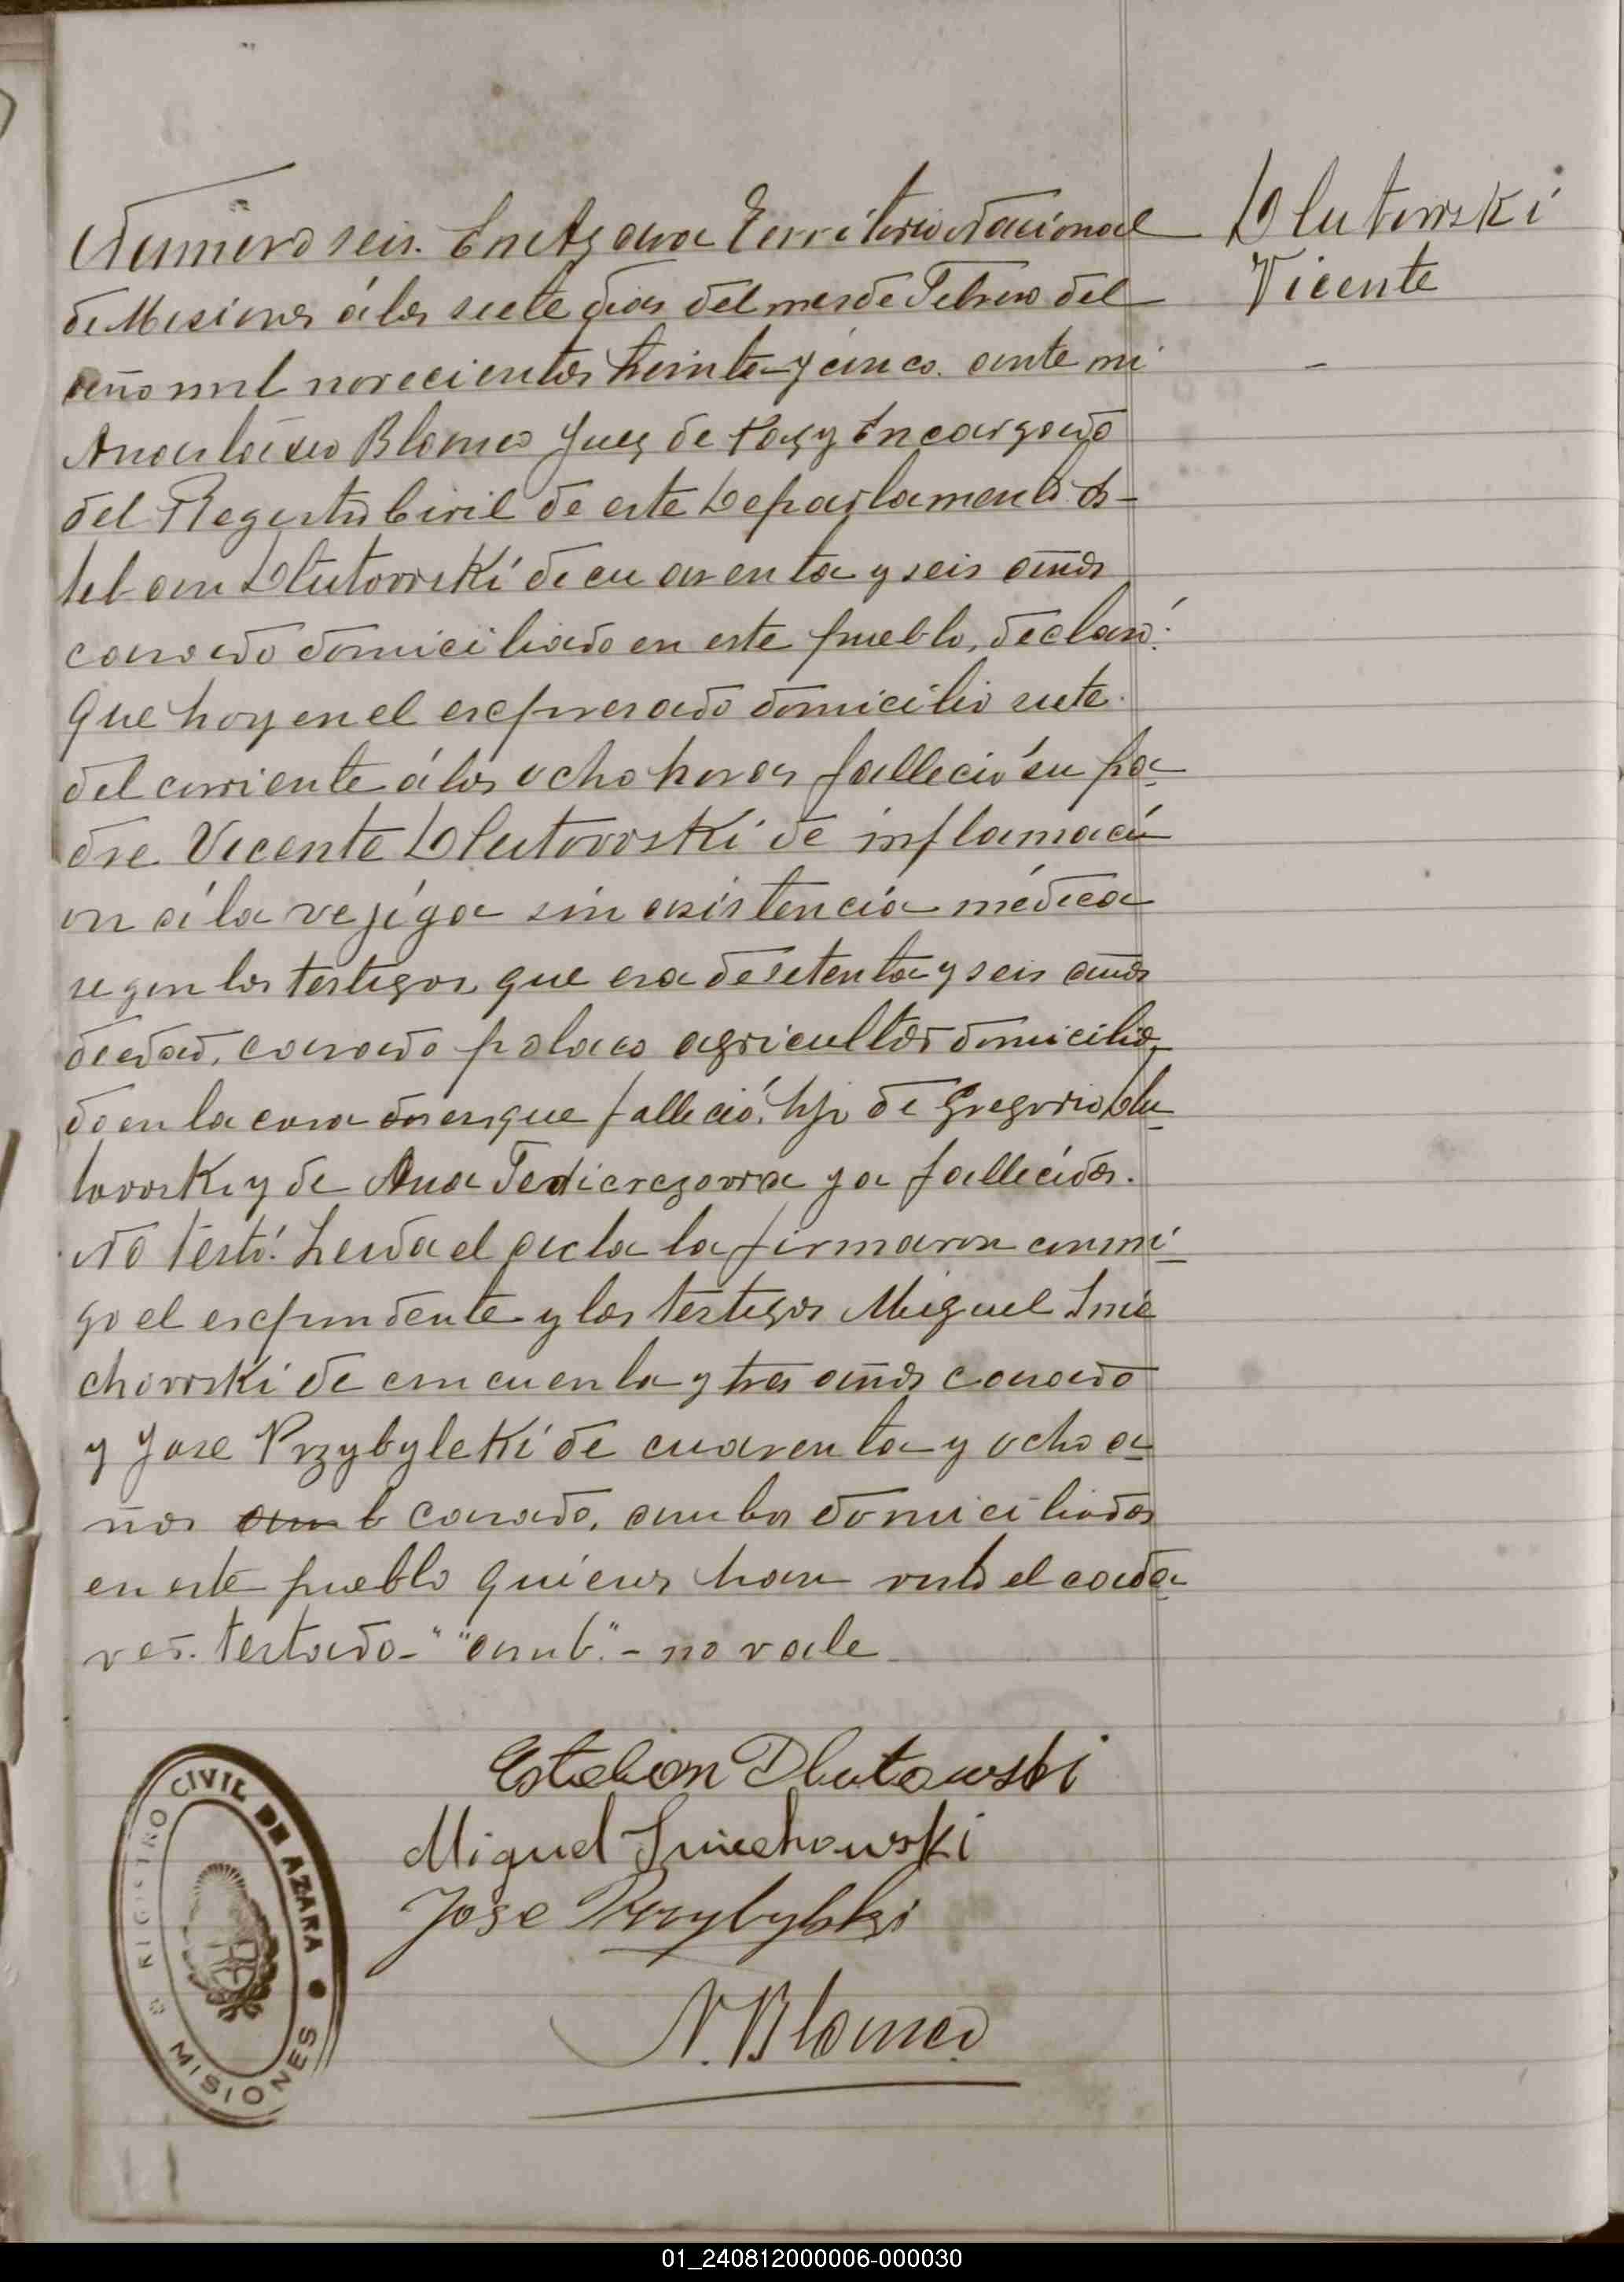 Dlutowski
Vicente
Numero seis. En Azara Territorio Nacional
de Misiones á los siete dias del mes de Febrero del
año mil novecientos treinta y cinco. ante mi
Blanco Juez de Paz y Encargado
del Registro Civil de este Departamento Es-
teban Dlutowski de cuarenta y seis años
casado domiciliado en este pueblo, declaró:
Que hoy en el expresado domicilio siete
del corriente á las ocho horas falleció su pa-
dre Vicente Dlutowski de inflamaci
on á la vejiga sin asistencia médica
segun los testigos, que era de setenta y seis años
de edad, casado polaco agricultor domicilia-
do en la casa en que falleció, hijo de Gregorio Dlu-
towski y de Ana ya fallecidos.
No testó. Leida el acta la firmaron conmi-
go el exponente y los testigos Miguel Snie
chowski de cincuenta y tres años casado
y Jose Przybyleki de cuarenta y ocho a-
ños amb casado, ambos domiciliados
en este pueblo quienes han visto el cada-
ver. testado-" "amb".- no vale
Esteban Dlutowski
Miguel Sniechowski
Jose Przybylski
N. Blanco
REGISTRO CIVIL DE AZARA
MISIONES
01_240812000006-000030